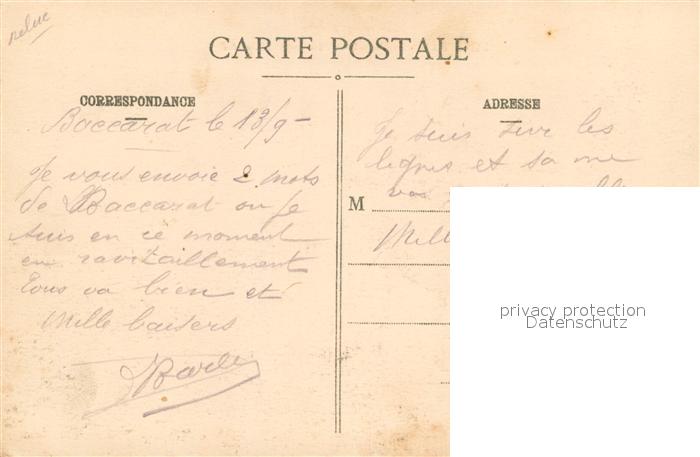 relue
CARTE POSTALE
CORRESPONDANCE
Baccarat le 13/9-
Je vous envoie 2 mots
de Baccarat ou je
suis en ce moment
en ravitaillement
Tous va bien et
Mille baisers
ADRESSE
Je suis sur les
lignes et sa me
M
Mill
privacy protection
Datenschutz